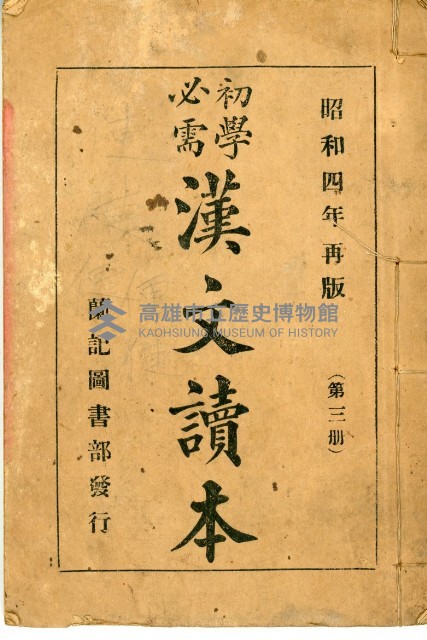 昭和四年再版
（第三册）
初學
必需
漢文讀本
蘭記圖書部發行
高雄市立歷史博物館
KAOHSIUNG MUSEUM OF HISTORY